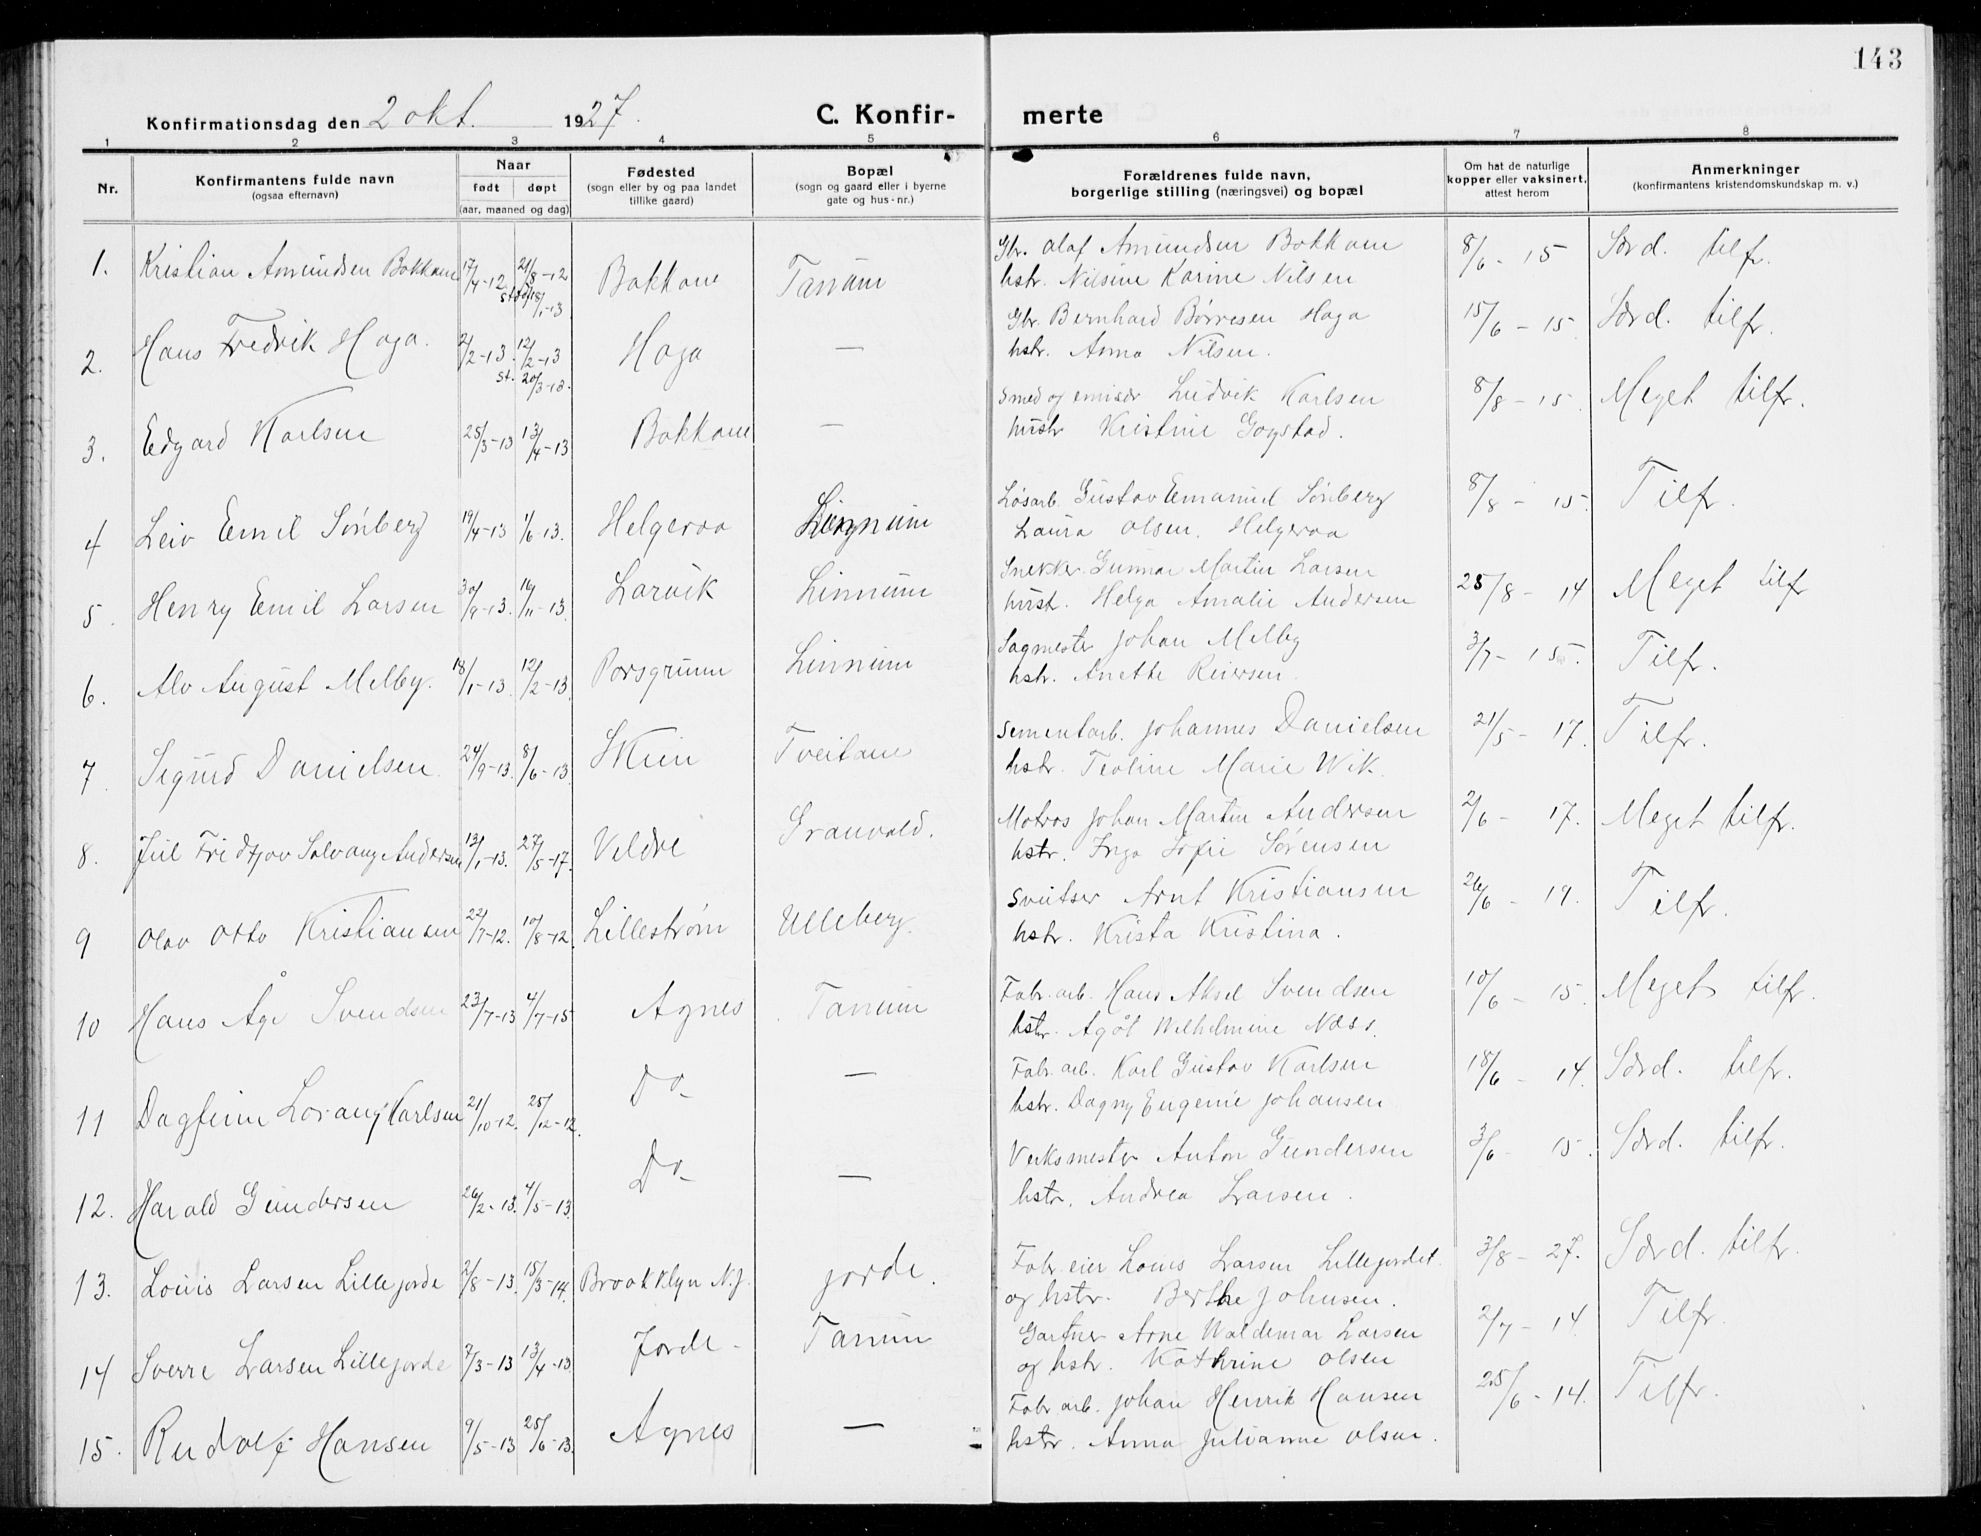 143
Konfirmationsdag den 2 okt. 1927.
C. Konfir-
merte
1 2 3 4 5 6 7 8
Nr.
Konfirmantens fulde navn
(ogsaa efternavn)
Naar
født døpt
(aar, maaned og dag)
Fødested
(sogn eller by og paa landet
tillike gaard)
Bopæl
(sogn og gaard eller i byerne
gate og hus-nr.)
Forældrenes fulde navn,
borgerlige stilling (næringsvei) og bopæl
Om hat de naturlige
kopper eller vaksinert,
attest herom
Anmerkninger
(konfirmantens kristendomskundskap m. v.)
1. Kristian Amundsen Bakkane 17/4-12 21/8-12 Bakkane Tanum Gbr. Olaf Amundsen Bakkane 8/6-15 Særd. tilfr.
st. 18/1-13 hstr. Nilsine Karine Nilsen
2. Hans Fredrik Haga. 2/2-13. 12/2-13 Haga — Gbr. Bernhard Børresen Haga 15/6-15 Særd. tilfr.
st. 20/3-13. hstr. Anna Nilsen.
3. Edgard Karlsen 25/3-13 13/4-13 Bakkane — Smed og emisær Ludvik Karlsen 8/8-15. Meget tilfr.
hustr Kristine Gogstad.
4 Leiv Emil Sønberg 19/4-13 1/6-13. Helgeroa Linnum Løsarb. Gustav Emanuel Sønberg 8/8-15. Tilfr.
Laura Olsen. Helgeroa
5. Henry Emil Larsen 30/9-13. 16/11-13. Larvik Linnum Snekker Gunnar Martin Larsen 25/8-14 Meget tilfr
hust. Helga Amalie Andersen
6. Alv August Melby. 18/1-13. 12/2-13. Porsgrunn Linnum Sagmester Johan Melby 3/7-15. Tilfr.
hstr. Anette Reiersen.
7. Sigurd Danielsen. 24/9-13. 8/6-13. Skien Tveitane Sementarb. Johannes Danielsen 21/5-17. Tilfr.
hstr. Teoline Marie Wik.
8. Juel Fridtjov Solvang Andersen 13/1-13. 27/5-17. Veldre Granvold. Matros Johan Martin Andersen 2/6-17. Meget tilfr.
hstr. Inga Sofie Sørensen
9 Olav Otto Kristiansen 22/7-12. 10/8-12. Lillestrøm Ulleberg. Sveitser Arnt Kristiansen 26/6-19. Tilfr.
hstr. Krista Kristina.
10 Hans Åge Svendsen 23/7-13 4/7-15 Agnes Tanum Fabr. arb. Hans Aksel Svendsen 10/6-15. Meget tilfr.
hstr. Agöt Wilhelmine Næss.
11 Dagfinn Lorang Karlsen 21/10-12. 25/12-12. Do — Fabr. arb. Karl Gustav Karlsen 18/6-14. Særd. tilfr.
hstr. Dagny Eugenie Johansen
12. Harald Gundersen 26/2-13. 4/5-13. Do — Verksmester Anton Gundersen 3/6-15. Særd. tilfr.
hstr. Andrea Larsen.
13. Louis Larsen Lillejorde 2/8-13. 15/3-14. Brookklyn N.J. Jorde. Fabr. eier Louis Larsen Lillejordet. 3/8-27. Særd. tilfr.
og hstr. Berthe Johnsen.
14 Sverre Larsen Lillejorde 7/3-13 13/4-13 Jorde - Tanum Gartner Arne Waldemar Larsen 2/7-14. Tilfr.
og hstr. Kathrine Olsen
15. Rudolf Hansen 9/5-13 25/6-13. Agnes — Fabr. arb. Johan Henrik Hansen 25/6-14. Tilfr.
hstr. Anna Julianne Olsen.